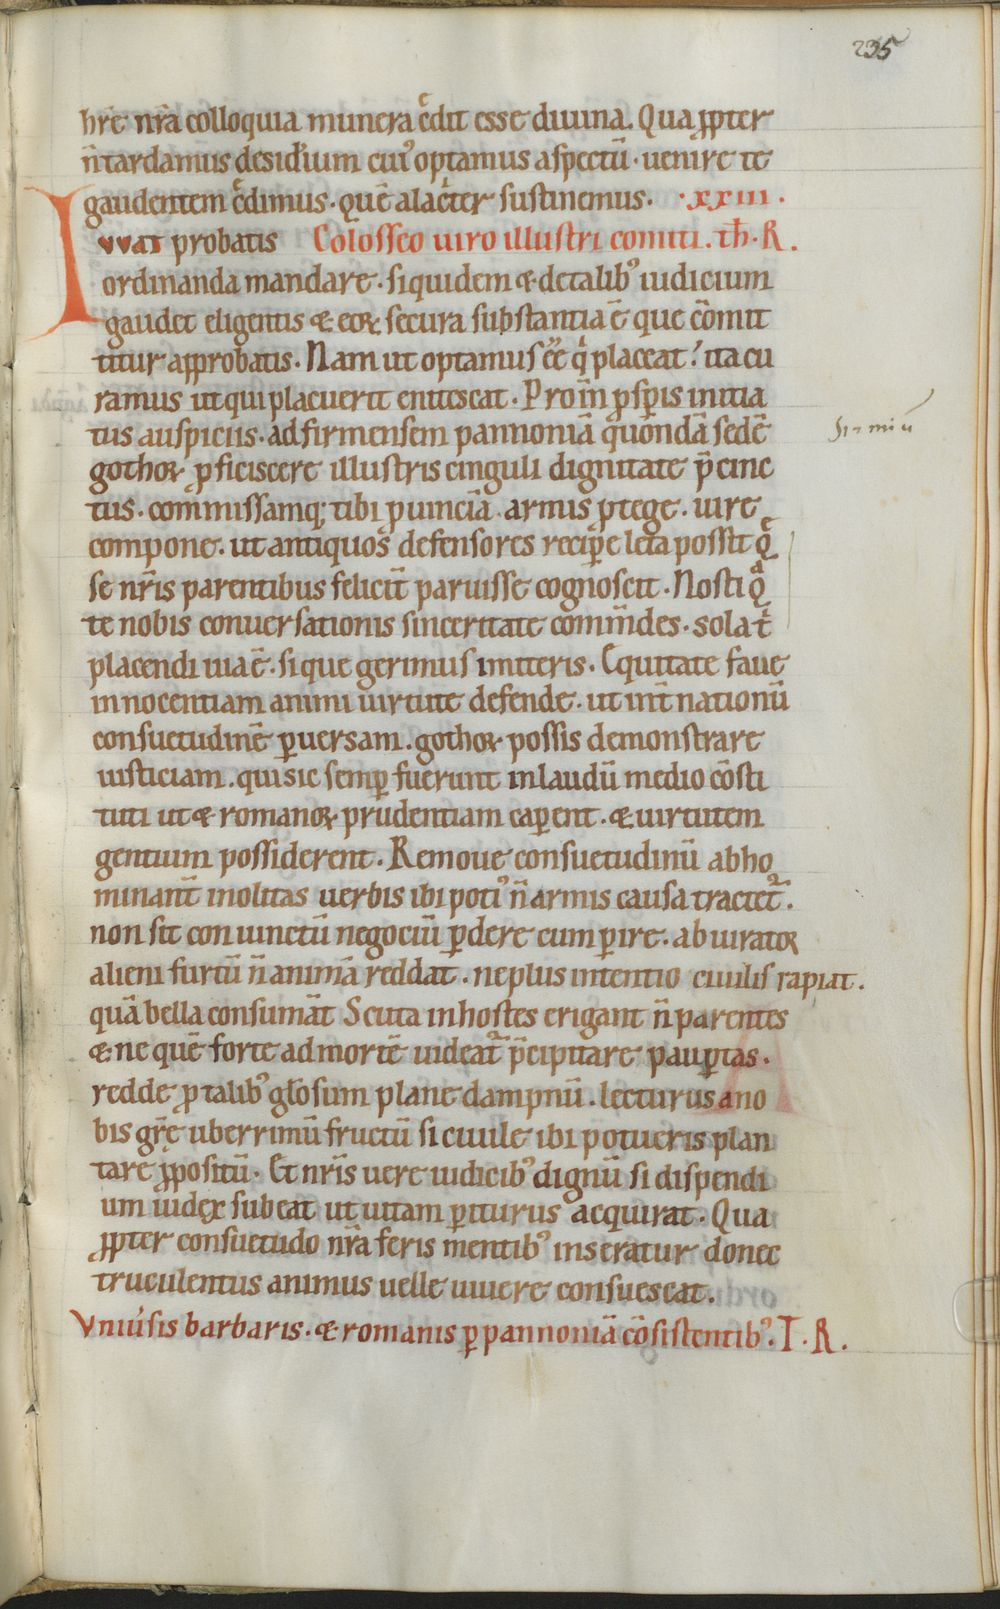 235
hr̄e nr̄a colloquia munera c̄dit esse diuina. Qua ꝓpter
n̄ tardamus desid̾ium cui᾽ optamus aspectū · uenire te
gaudentem c̄dimus · quē alacͥter sustinemus · ·xxiii·
Iuuat probatis Colosseo uiro illustri comiti · th̄ · R.
ordinanda mandare · siquidem & de talib᾽ iudicium
gaudet eligentis & eoꝝ secura substantia ē que cōmit
titur apꝓbatis · Nam ut optamus ēe qͥ placeat? ita cu
ramus ut qui placuerit enitescat · Proīn ꝓsꝑis initia
tus auspiciis · ad firmensem pannoniā quondā sedē
Sirmiū
gothoꝝ ꝓficiscere illustris cinguli dignitate p̄cinc
tus · commissamq; tibi ꝓuinciā · armis ꝓtege · iure
compone · ut antiquos defensores reciꝑe leta possit q̄
se nr̄is parentibus feliciť paruisse cognoscit · Nosti qͣ
te nobis conuersationis sinceritate com̄ndes · sola t̄
placendi uia ē · si que gerimus imiteris · Equitate faue
innocentiam animi uirtute defende · ut inť nationū
consuetudinē ꝑuersam · gothoꝝ possis demonstrare
iusticiam · qui sic semꝑ fuerunt in laudū medio cōsti
tuti ut & romanoꝝ prudentiam caꝑent · & uirtutem
gentium possiderent · Remoue consuetudinū abho
minanť inolitas uerbis ibi poti᾽ n̄ armis causa tractet᷑ ·
non sit coniunctū negociū ꝑdere cum ꝑire · abiuratoꝝ
alieni furtū n̄ animā reddat · ne plus intentio ciuilis rapiat ·
quā bella consumāt Scuta in hostes erigant n̄ parentes
& ne quē forte ad mortē uideat᷑ p̄cipitare pauꝑtas ·
redde ꝓ talib᾽ glo̅sum plane dampnū · lecturus a no
bis gr̄e uberrimū fructū si ciuile ibi potueris plan
tare ꝓpositū · Et nr̄is uere iudicib᾽ dignū si dispendi
um iudex subeat ut uitam ꝑiturus acquirat · Qua
ꝓpter consuetudo nr̄a feris mentib᾽ inseratur donec
truculentus animus uelle uiuere consuescat ·
Vniu̾sis barbaris · & romanis ꝑ pannoniā cōsistentib᾽ · T · R ·